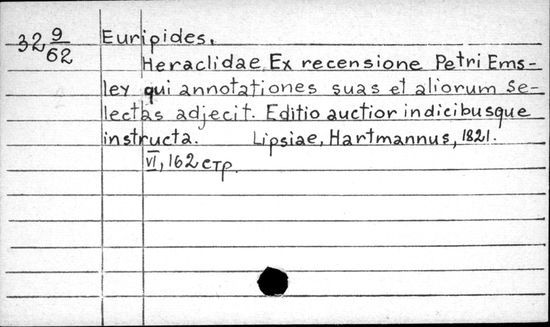 32 9/62
Euripides.
Heraclidae. Ex recensione Petri Ems-
ley qui annotationes suas et aliorum se-
lectas adjecit. Editio auctior indicibusque
instructa. Lipsiae, Hartmannus, 1821.
VI, 162 стр.